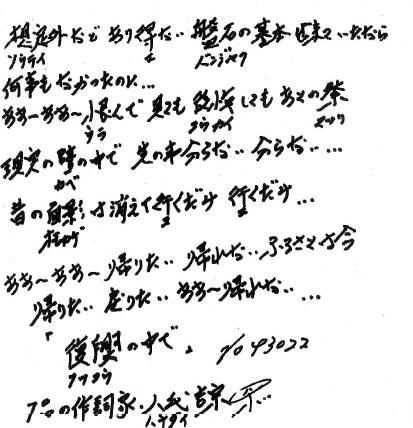 想定外などあり得ない盤石の基本 出来ていたなら
ソウテイ え バンジャク
何事もなかったのに...
ああ〜ああ〜 恨んで見ても後悔してもあとの祭
ウラ コウカイ マツリ
現実の壁の中で 先の事分らない 分らない...
カベ
昔の面影は消えて行くだけ 行くだけ...
オモカゲ
ああ〜ああ〜帰りたい 帰れない ふるさとは今
帰りたい 戻りたい ああ〜帰れない...
「復興の中で」
フッコウ
プロの作詞家